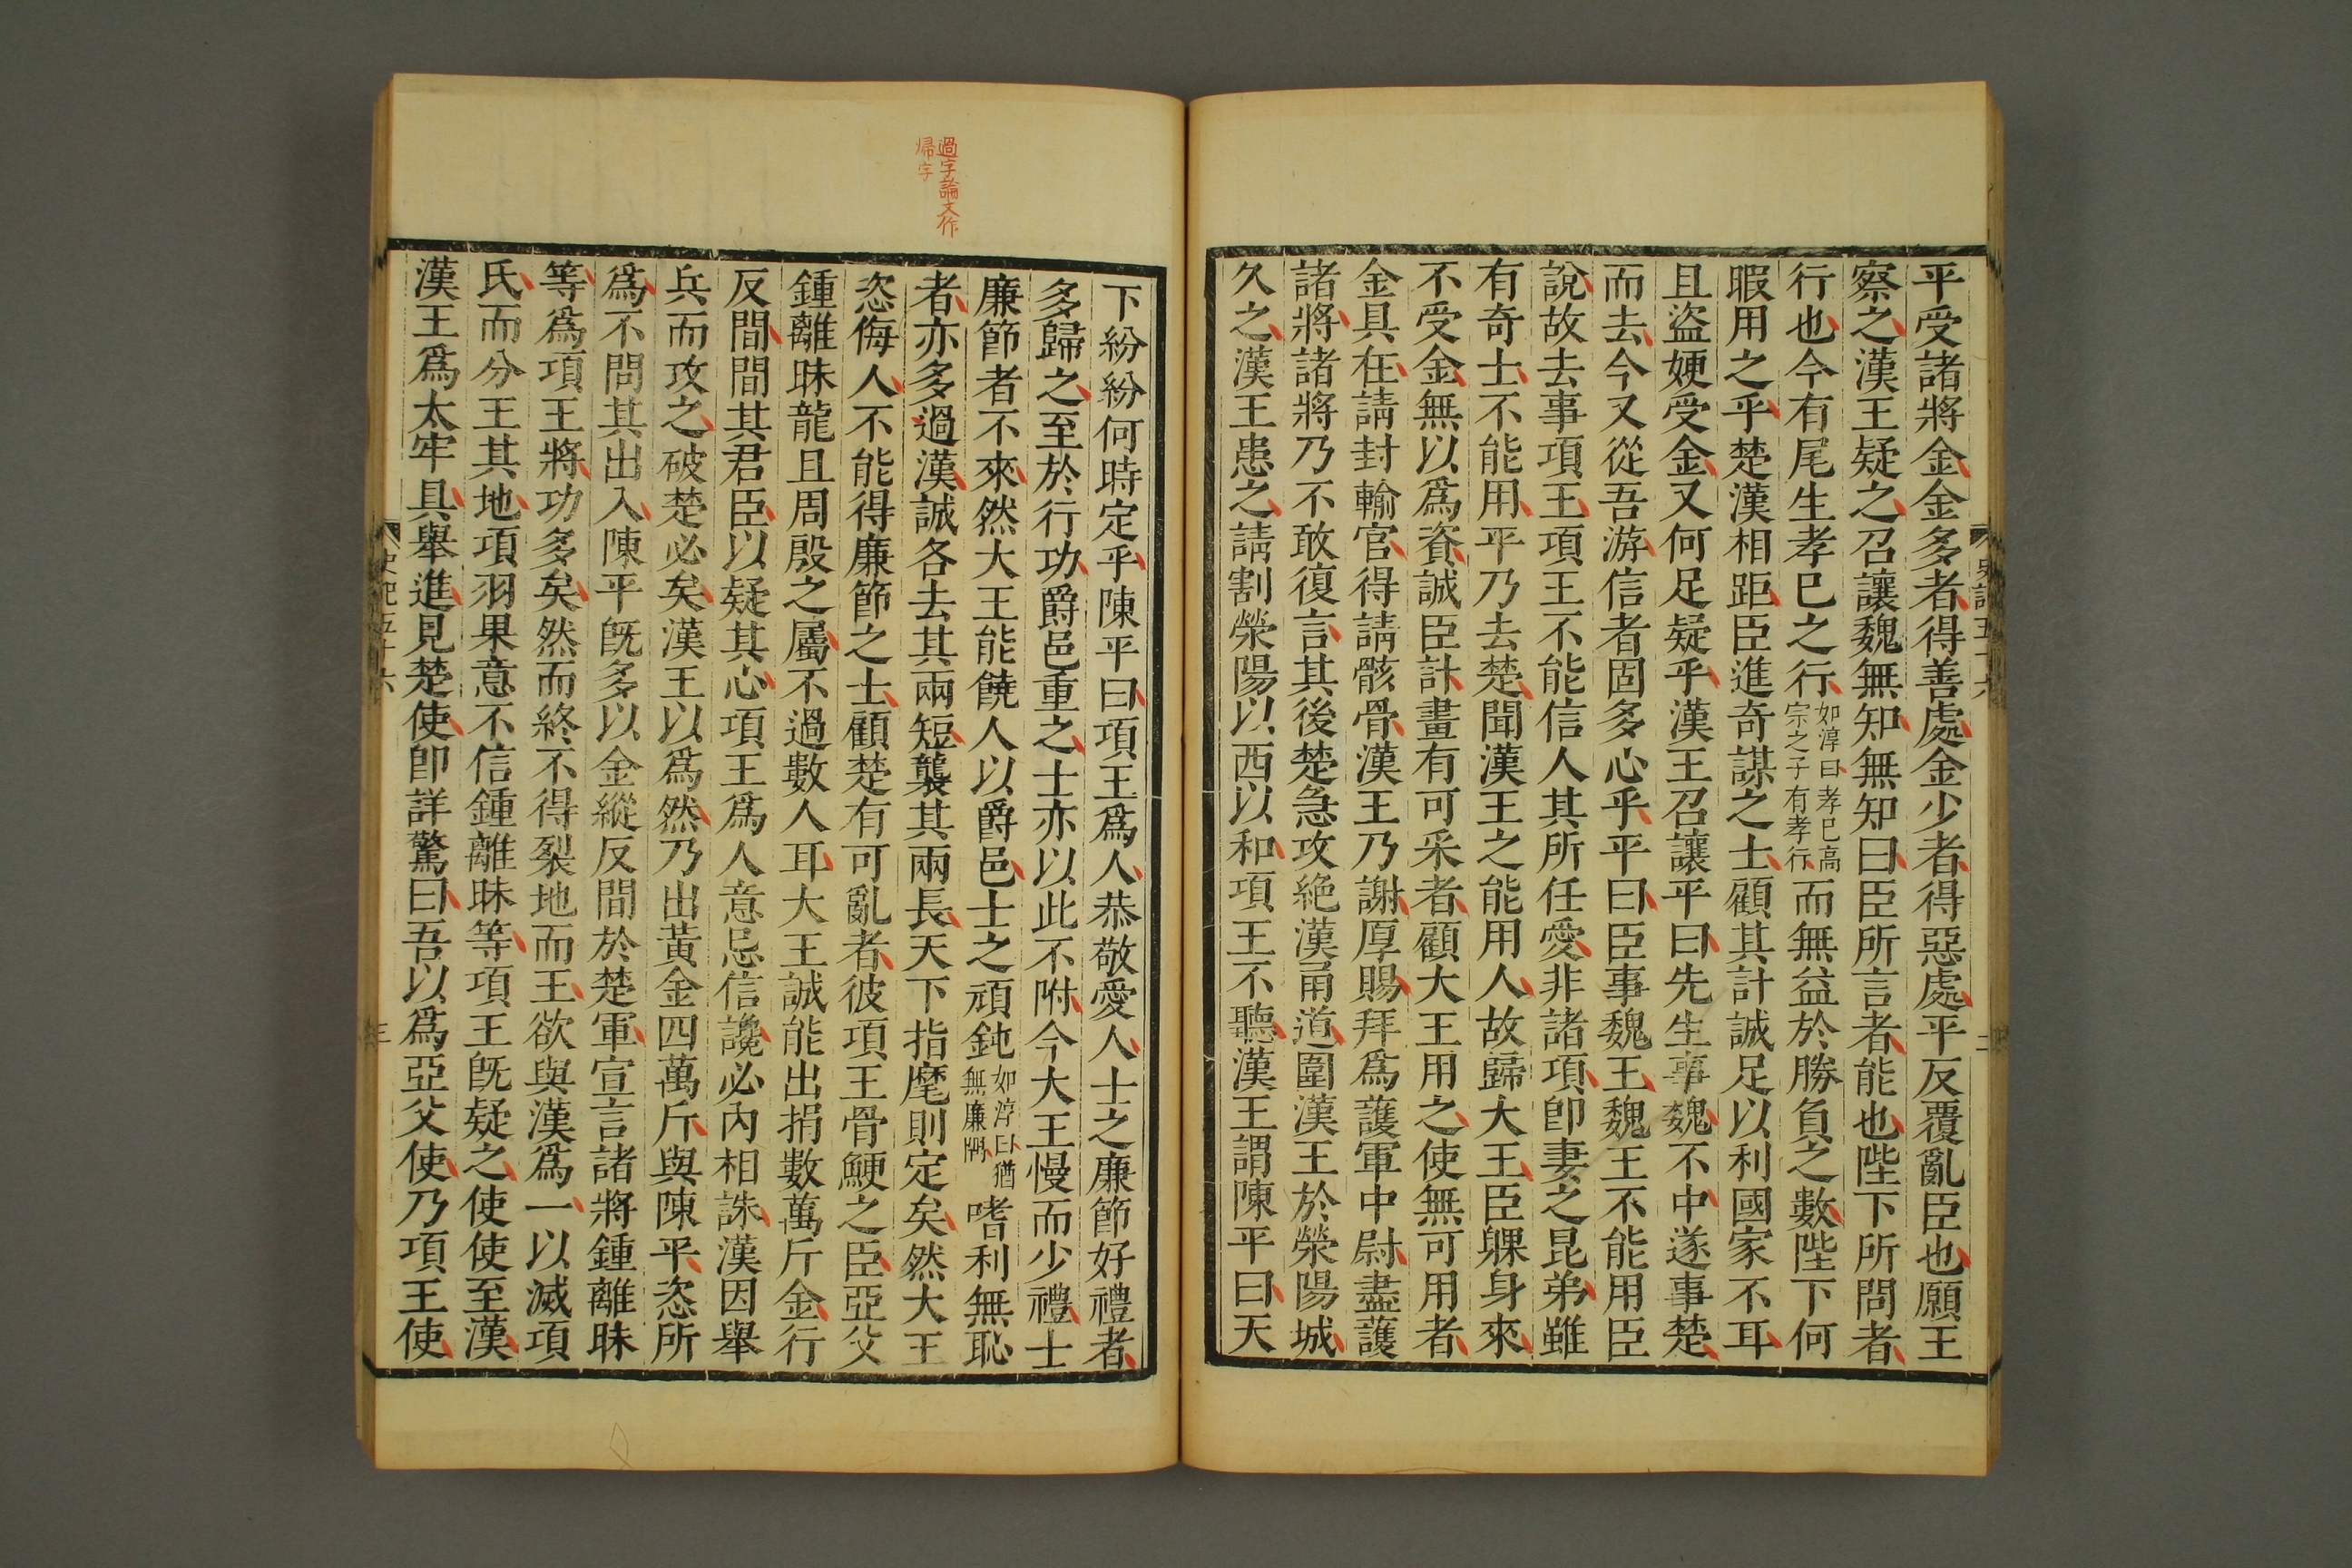 平受諸將金金多者得善處金少者得惡處平反覆亂臣也願王
察之漢王疑之召讓魏無知無知曰臣所言者能也陛下所問者
行也今有尾生孝已之行如淳曰孝已高宗之子有孝行而無益於勝負之數陛下何
暇用之乎楚漢相距臣進奇謀之士顧其計誠足以利國家不耳
且盜娷受金又何足疑乎漢王召讓平曰先生事魏不中遂事楚
而去今又從吾游信者固多心乎平曰臣事魏王魏王不能用臣
說故去事項王項王不能信人其所任愛非諸項即妻之昆弟雖
有奇士不能用平乃去楚聞漢王之能用人故歸大王臣躶身來
不受金無以爲資誠臣計畫有可采者顧大王用之使無可用者
金具在請封輸官得請骸骨漢王乃謝厚賜拜爲護軍中尉盡護
諸將諸將乃不敢復言其後楚急攻絶漢甬道圍漢王於滎陽城
久之漢王患之請割滎陽以西以和項王不聽漢王謂陳平曰天
過字論文作
帰字
下紛紛何時定乎陳平曰項王爲人恭敬愛人士之廉節好禮者
多歸之至於行功爵邑重之士亦以此不附今大王慢而少禮士
廉節者不來然大王能饒人以爵邑士之頑鈍如淳曰猶無廉隅嗜利無恥
者亦多過漢誠各去其兩短襲其兩長天下指麾則定矣然大王
恣侮人不能得廉節之士顧楚有可亂者彼項王骨鯁之臣亞父
鍾離眛龍且周殷之屬不過數人耳大王誠能出捐數萬斤金行
反間間其君臣以疑其心項王爲人意忌信讒必內相誅漢因舉
兵而攻之破楚必矣漢王以爲然乃出黃金四萬斤與陳平恣所
爲不問其出入陳平旣多以金縱反間於楚軍宣言諸將鍾離眛
等爲項王將功多矣然而終不得裂地而王欲與漢爲一以滅項
氏而分王其地項羽果意不信鍾離眛等項王旣疑之使使至漢
漢王爲太牢具舉進見楚使即詳驚曰吾以爲亞父使乃項王使
史記五十六
三